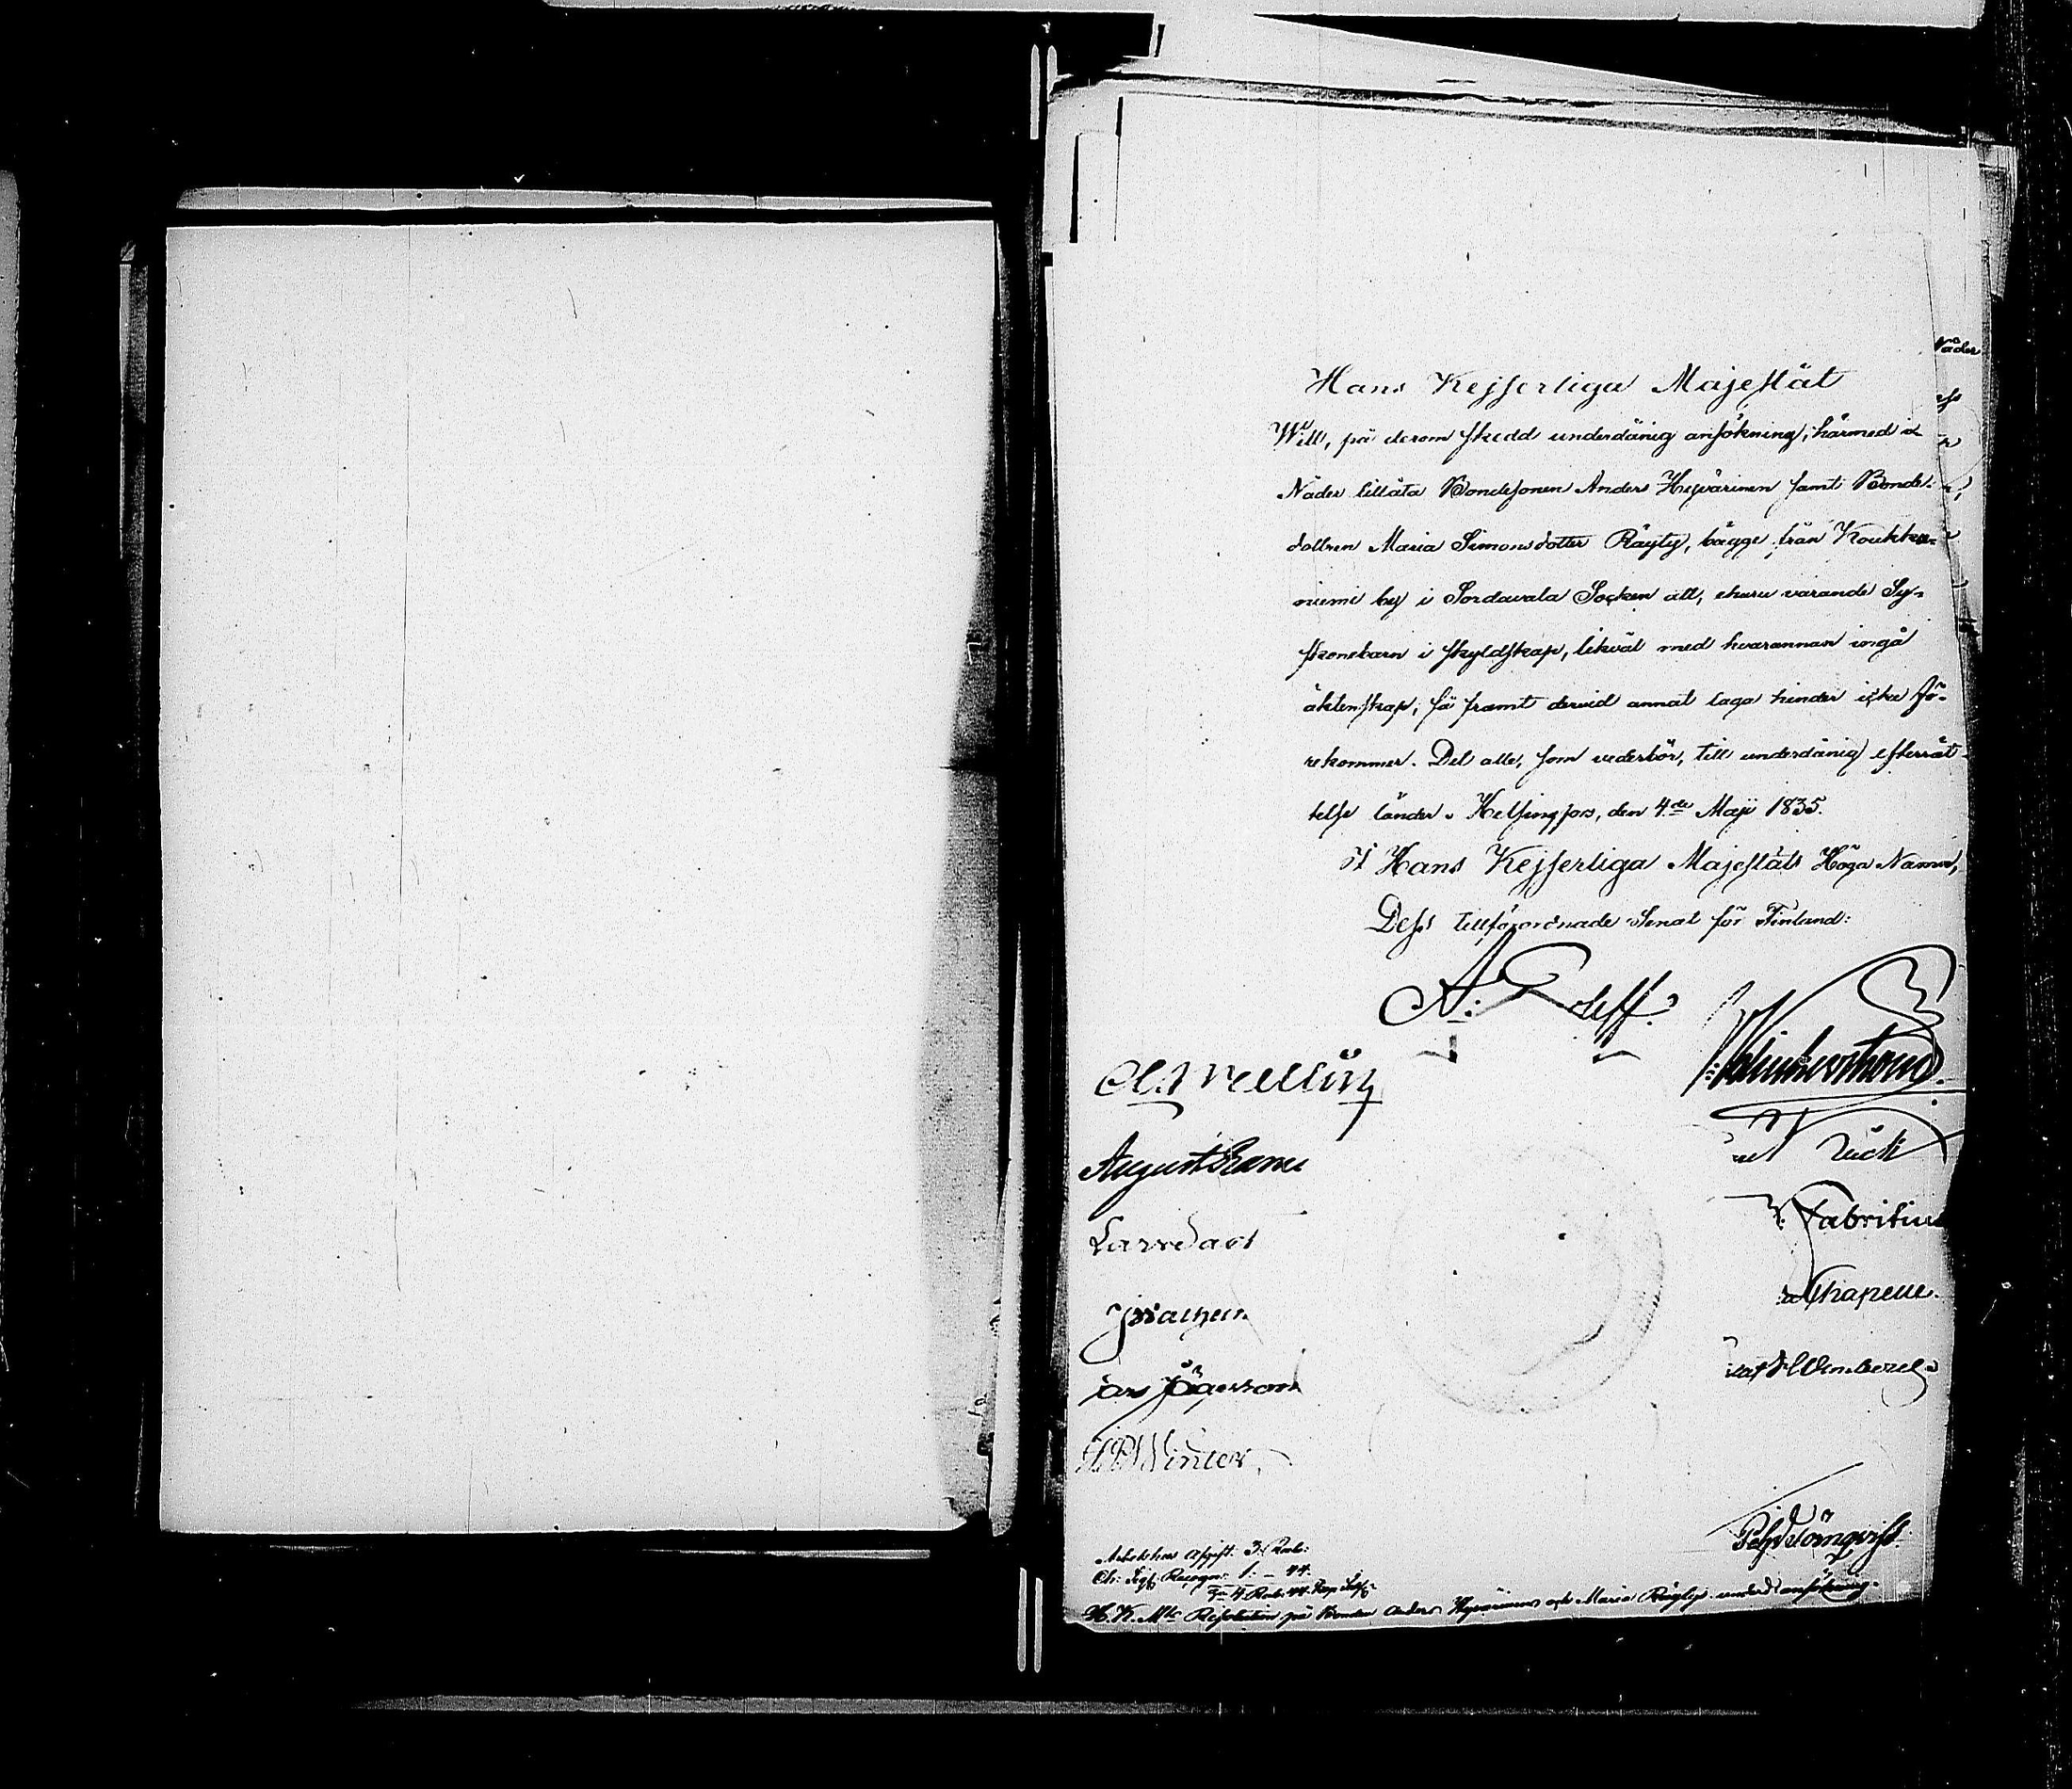 Hans Kejserliga Majestät
Will, på derom skedd underdånig ansökning, härmed i
Nåder tillåta Bondesonen Anders Hyvärinen samt Bonde-
dottren Maria Simonsdotter Räyty, bägge från Koukku-
niemi by i Sordavala Socken att, ehuru varande Sy-
skonebarn i skyldskap, likväl med hvarannan ingå
äktenskap, så framt dervid annat laga hinder icke fö-
rekommer. Det alle, som vederbör, till underdånig efterrät-
telse länder. Helsingfors, den 4de Maji 1835.
I Hans Kejserliga Majestäts Höga Namn,
Dess tillförordnade Senat för Finland:
A.
Klinckowström
A. Mellin
August Ramsay
Fabritius
Chapelle
HB Winter.
Pehr Törnqvist.
afgift 3. Rub:
Ch: Sigf: Recogn: 1. _ 44.
4 Rub. 44 Kop
H. K. Mts Resolution på Bonden Anders Hyvärinens och Maria Räytys underd. ansökning.
Nåder